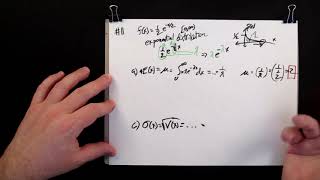 #11 f(x) = ½ e^(-x/2) [0,∞)
exponential distribution
½ e^(-½x) → λe^(-λx)
a) E(x) = μ = ∫₀^∞ xλe^(-λx) dx = ... = 1/λ μ = (1/λ) = (1/(1/2)) = 2
c) σ(x) = √V(x) = ... =